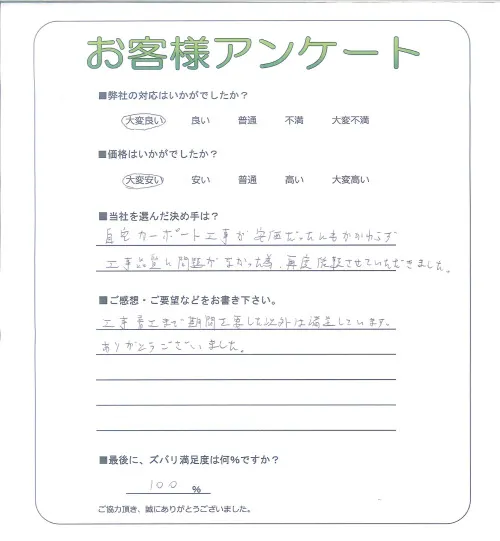 お客様アンケート
■弊社の対応はいかがでしたか？
大変良い 良い 普通 不満 大変不満
■価格はいかがでしたか？
大変安い 安い 普通 高い 大変高い
■当社を選んだ決め手は？
自宅カーポート工事が安価だったにもかかわらず
工事品質に問題がなかった為、再度依頼させていただきました。
■ご感想・ご要望などをお書き下さい。
工事着工まで期間を要した以外は満足しています。
ありがとうございました。
■最後に、ズバリ満足度は何％ですか？
100 ％
ご協力頂き、誠にありがとうございました。